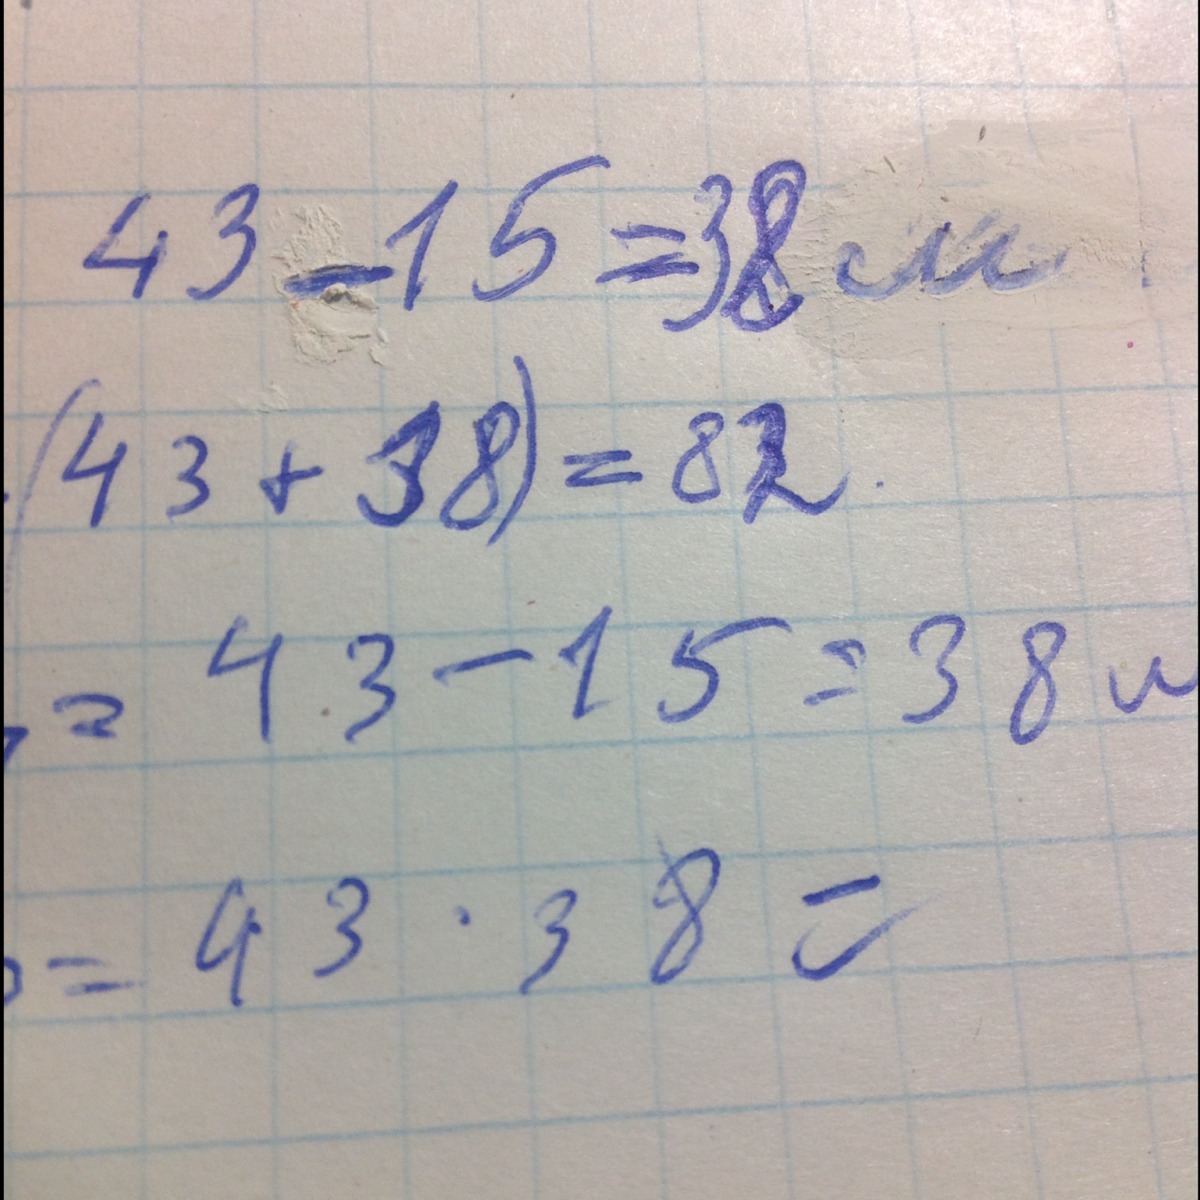 43-15=38 м
(43+38)=82.
= 43-15=38 м
= 43·38=